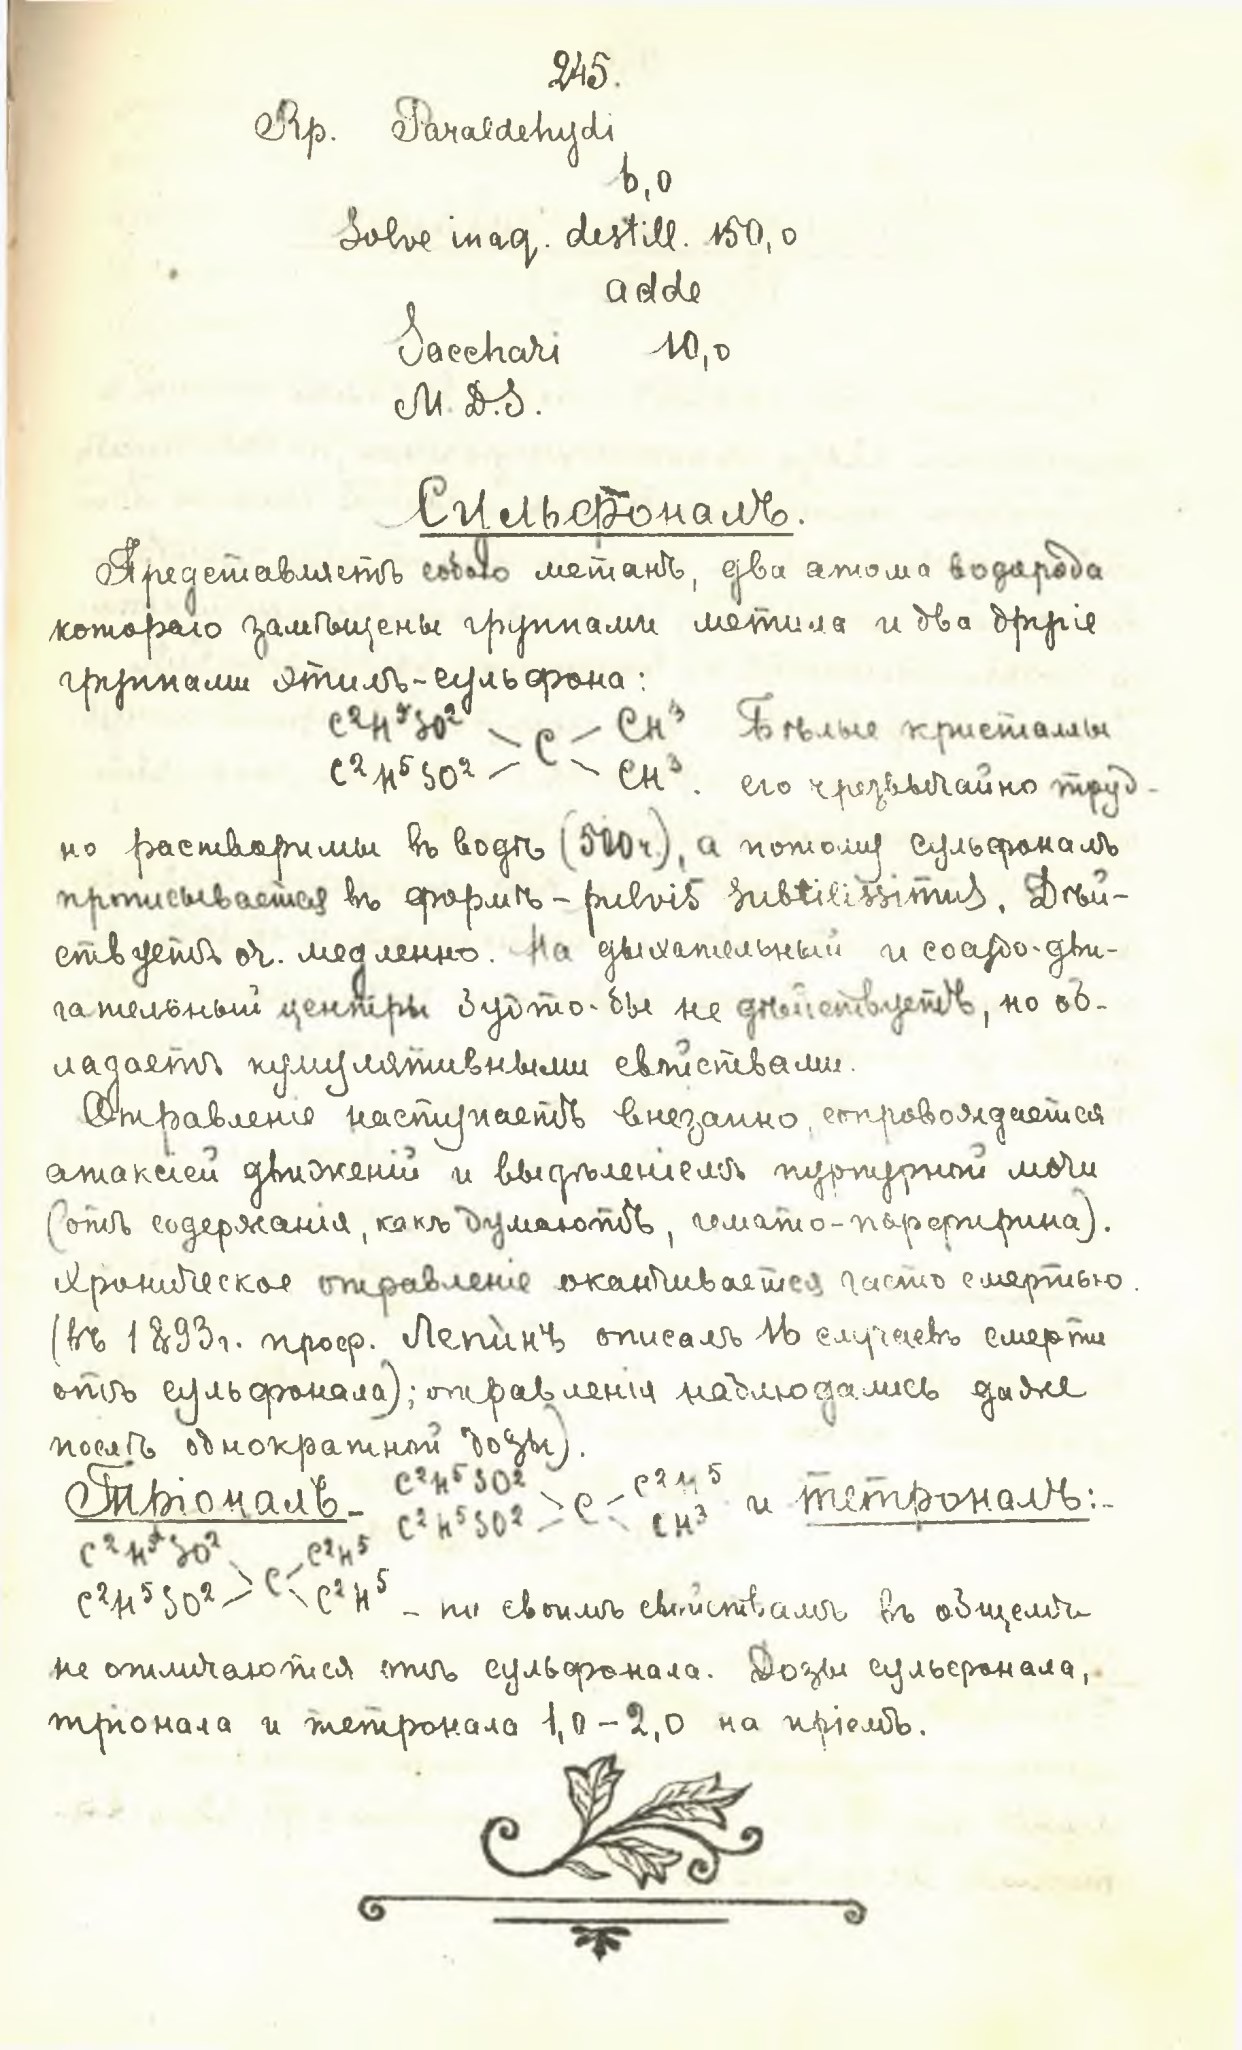 245.
Rp. Paraldehydi
6,0
Solve in aq. destill. 150,0
adde
Sacchari 10,0
M. D. S.
Сульфоналъ.
Представляетъ собою метанъ, два атома водорода
котораго замѣщены группами метила и два другіе
группами этилъ-сульфона:
C²H⁵SO² \ C / CH³ Бѣлые кристаллы
C²H⁵SO² / \ CH³. его чрезвычайно труд-
но растворимы въ водѣ (500 ч.), а потому сульфоналъ
прописывается въ формѣ - pulvis subtilissimus. Дѣй-
ствуетъ оч. медленно. На дыхательный и сосудо-дви-
гательный центры будто-бы не дѣйствуетъ, но об-
ладаетъ кумулятивными свойствами.
Отравленіе наступаетъ внезапно, сопровождается
атаксіей движеній и выдѣленіемъ пурпурной мочи
(отъ содержанія, какъ думаютъ, гемато-порфирина).
Хроническое отравленіе оканчивается часто смертью.
(въ 1893 г. проф. Лепинъ описалъ 16 случаевъ смерти
отъ сульфонала); отравленія наблюдались даже
послѣ однократной дозы).
Тріоналъ - C²H⁵SO² \ C / C²H⁵ и тетроналъ:-
C²H⁵SO² / \ CH³
C²H⁵SO² \ C / C²H⁵
C²H⁵SO² / \ C²H⁵ - по своимъ свойствамъ въ общемъ
не отличаются отъ сульфонала. Дозы сульфонала,
тріонала и тетронала 1,0 - 2,0 на пріемъ.